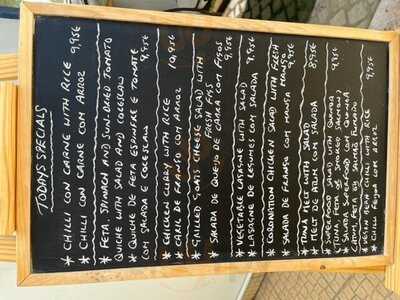 TODAYS SPECIALS
* CHILLI CON CARNE WITH RICE
* CHILLI CON CARNE COM ARROZ
9,95€
* FETA, SPINACH AND SUN-DRIED TOMATO
QUICHE WITH SALAD AND COLESLAW
* QUICHE DE FETA ESPINAFRE E TOMATE
COM SALADA E COLESLAW 9,95€
* CHICKEN CURRY WITH RICE
* CARIL DE FRANGO COM ARROZ 10,95€
* GRILLED GOATS CHEESE SALAD WITH
FRESH FIGS
* SALADA DE QUEIJO DE CABRA COM FIGOS
9,95€
* VEGETABLE LASAGNE WITH SALAD
* LASAGNE DE LEGUMES COM SALADA 9,95€
* CORONATION CHICKEN SALAD WITH FRESH
MANGO
* SALADA DE FRANGO COM MANGA 9,95€
* TUNA MELT WITH SALAD
* MELT DE ATUM COM SALADA 8,95€
* SUPERFOOD SALAD WITH QUINOA
TUNA FETA OR SMOKED SALMON
* SALADA SUPERFOOD COM QUINOA
ATUM, FETA OU SALMÃO FUMADO 9,95€
* VEGAN BEAN CHILLI WITH RICE
* CHILLI FEIJÃO COM ARROZ 9,95€